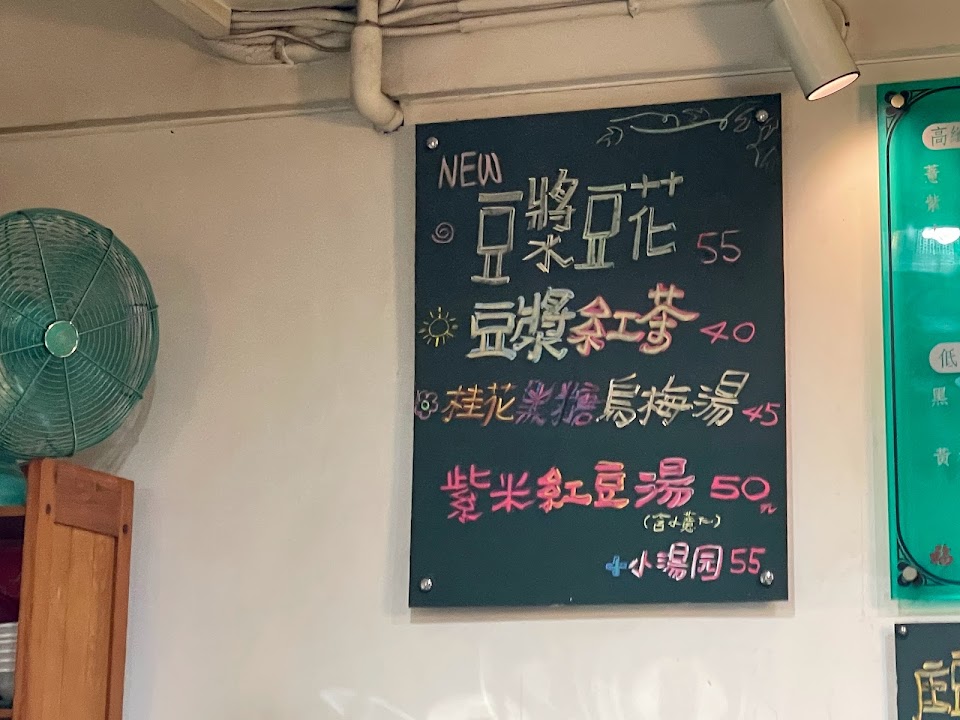 NEW
豆漿豆花 55
豆漿紅茶 40
桂花黑糖烏梅湯 45
紫米紅豆湯 50元
(含小薏仁)
+小湯园 55
高纖
薏
紫
低
黑
黃
豆